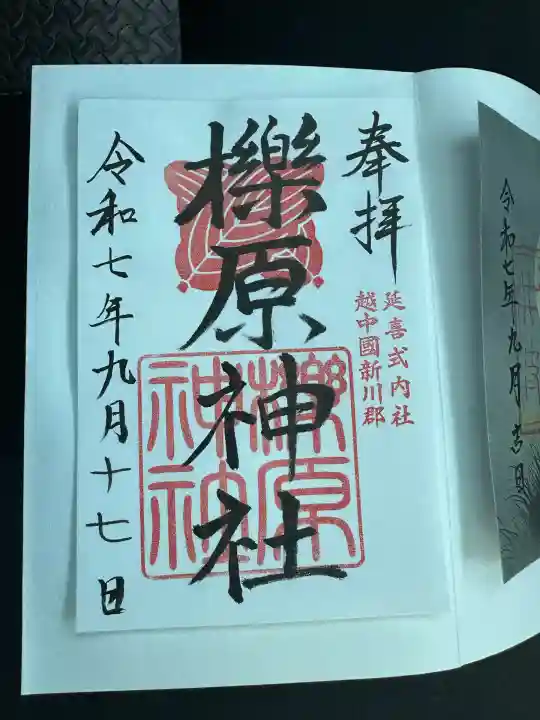 奉拝
延喜式内社
越中國新川郡
櫟原神社
櫟原
神社
令和七年九月十七日
令和七年九月吉日